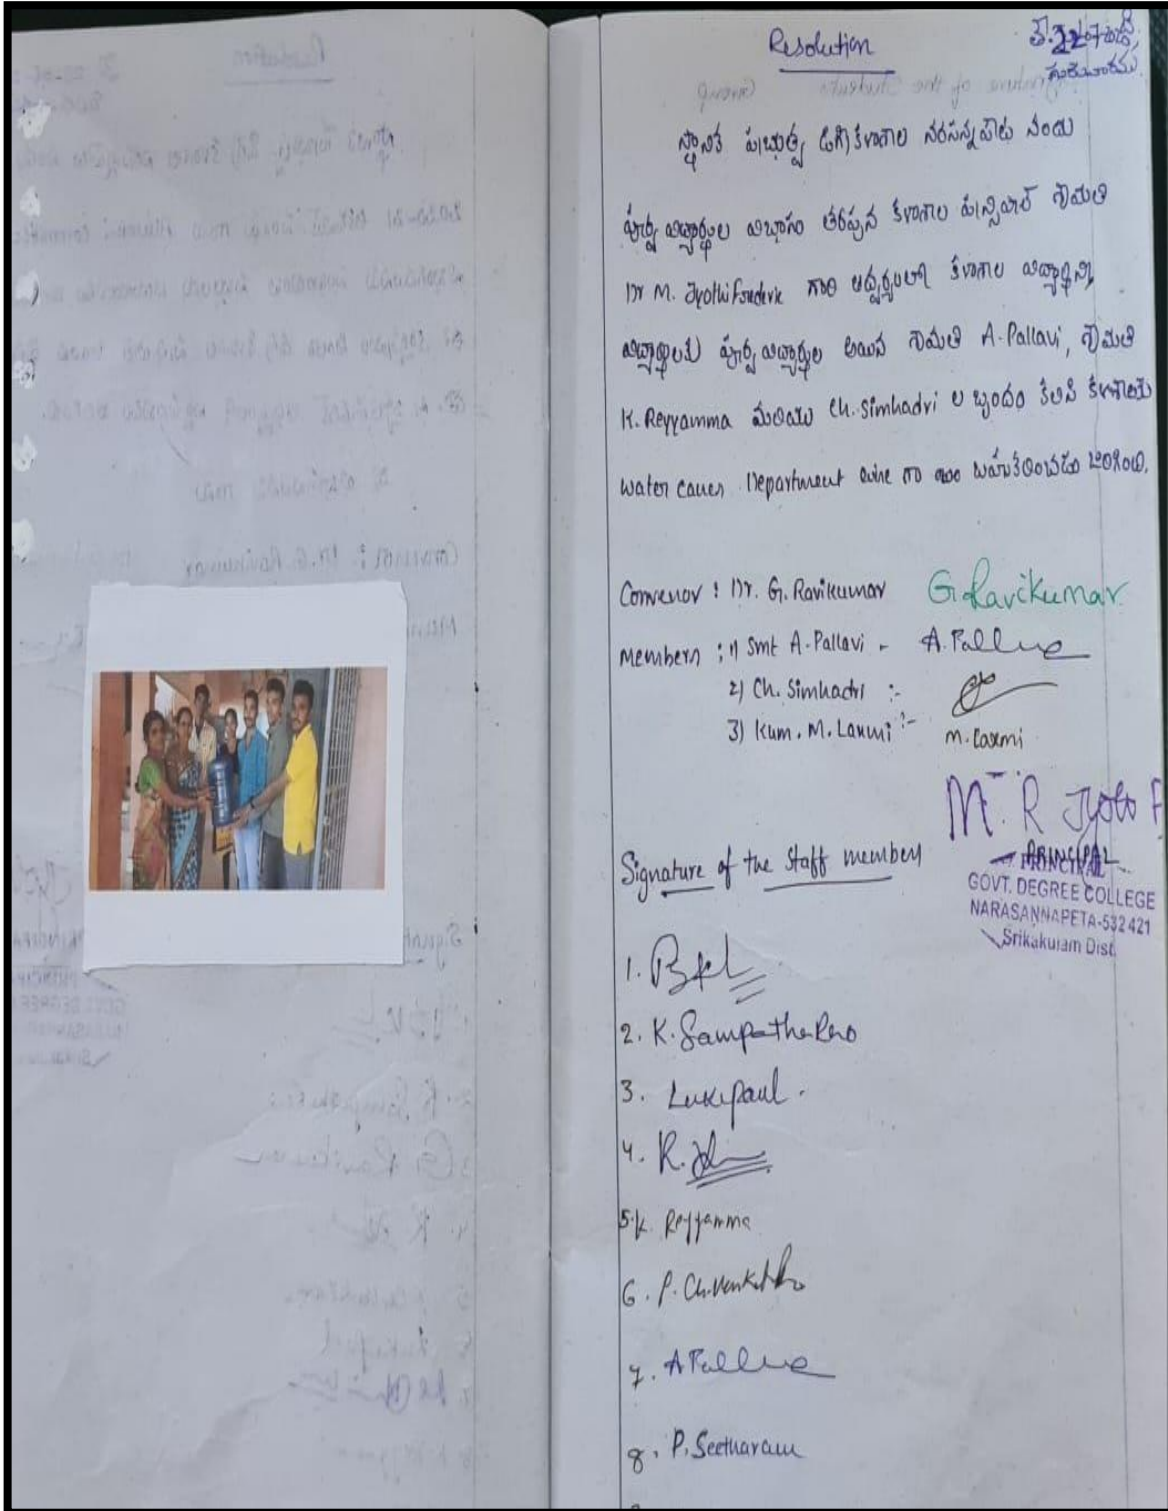 Resolution
గురువారము
స్థానిక ప్రభుత్వ డిగ్రీ కళాశాల నరసన్నపేట నందు
పూర్వ విద్యార్థుల విభాగం తరపున కళాశాల ప్రిన్సిపాల్ శ్రీమతి
Dr M. Jyothi Frederic గారి ఆధ్వర్యంలో కళాశాల
పూర్వ విద్యార్థుల అయిన శ్రీమతి A. Pallavi, శ్రీమతి
K. Reyyamma మరియు Ch. Simhadri ల బృందం కలిసి కళాశాలకు
water canes Department wise గా బహుకరించడం జరిగింది.
Convenor : Dr. G. Ravikumar G. Ravikumar
Members : 1) Smt A. Pallavi - A. Pallve
2) Ch. Simhadri :-
3) Kum. M. Laxmi :- M. Laxmi
M. R Jyoti
Signature of the Staff members
PRINCIPAL
GOVT. DEGREE COLLEGE
NARASANNAPETA-532 421
Srikakulam Dist.
1.
2. K. Sampatha Rao
3. Luke paul.
4. R.
5. K. Reyyamma
6. P. Ch. Venkat Rao
7. A Pallve
8. P. Seetharam